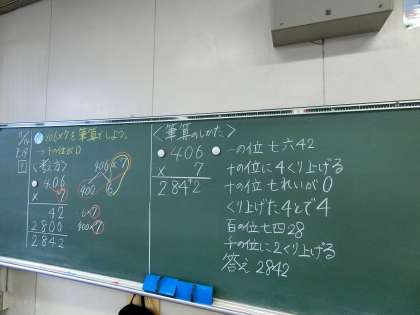 406×7を筆算でしよう。
十の位が0
406
400
6
×7
406
× 7
42
2800
2842
6×7
400×7
<筆算のしかた>
406
× 7
2842
一の位 七六42
十の位に4くり上げる
十の位 七れいが0
くり上げた4とで4
百の位 七四28
千の位に2くり上げる
答え 2842